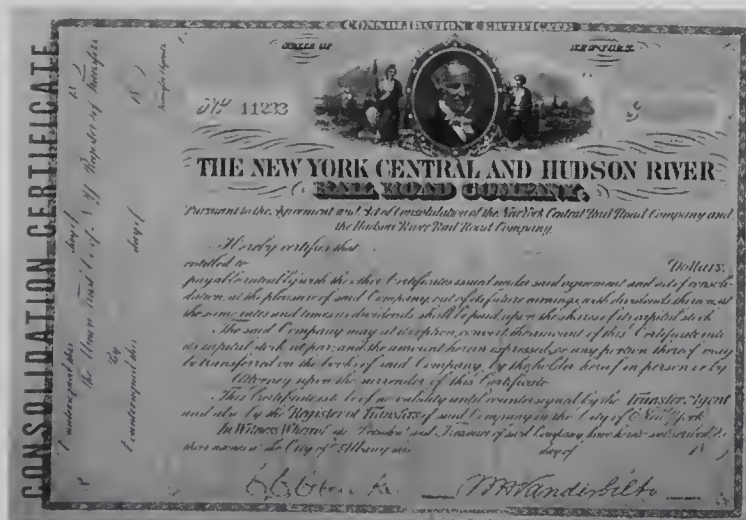 CONSOLIDATION CERTIFICATE
STATE OF NEW YORK.
No 11233 $
THE NEW YORK CENTRAL AND HUDSON RIVER
RAIL ROAD COMPANY,
Pursuant to the Agreement and Act of Consolidation of the New York Central Rail Road Company and
the Hudson River Rail Road Company,
Hereby certifies that
entitled to Dollars,
payable ratably with the other Certificates issued under said agreement and act of consoli-
dation, at the pleasure of said Company, out of its future earnings, with dividends thereon at
the same rates and times as dividends shall be paid upon the shares of its capital stock.
The said Company may at its option, convert the amount of this Certificate into
its capital stock at par; and the amount herein expressed, or any portion thereof may
be transferred on the books of said Company, by the holder hereof in person or by
Attorney upon the surrender of this Certificate.
This Certificate to be of no validity until countersigned by the Transfer Agent
and also by the Register of Transfers of said Company in the City of New York.
In Witness Whereof the President and Treasurer of said Company have
their names at the City of Albany this day of 18
W H Vanderbilt
CONSOLIDATION CERTIFICATE
Countersigned this day of 18
The Union Trust Co. of N.Y. Register of Transfers
By
Countersigned this day of 18
Transfer Agent